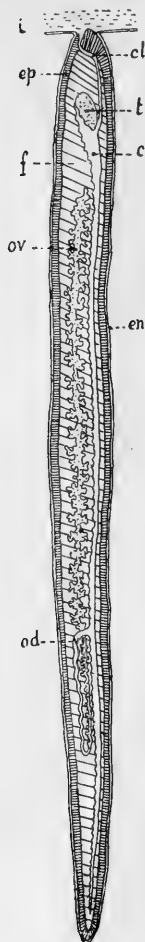 i
cl
ep
t
f
c
ov
en
od